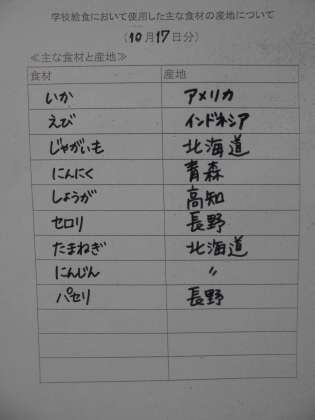 学校給食において使用した主な食材の産地について
(10月17日分)
≪主な食材と産地≫
食材 産地
いか アメリカ
えび インドネシア
じゃがいも 北海道
にんにく 青森
しょうが 高知
セロリ 長野
たまねぎ 北海道
にんじん 〃
パセリ 長野